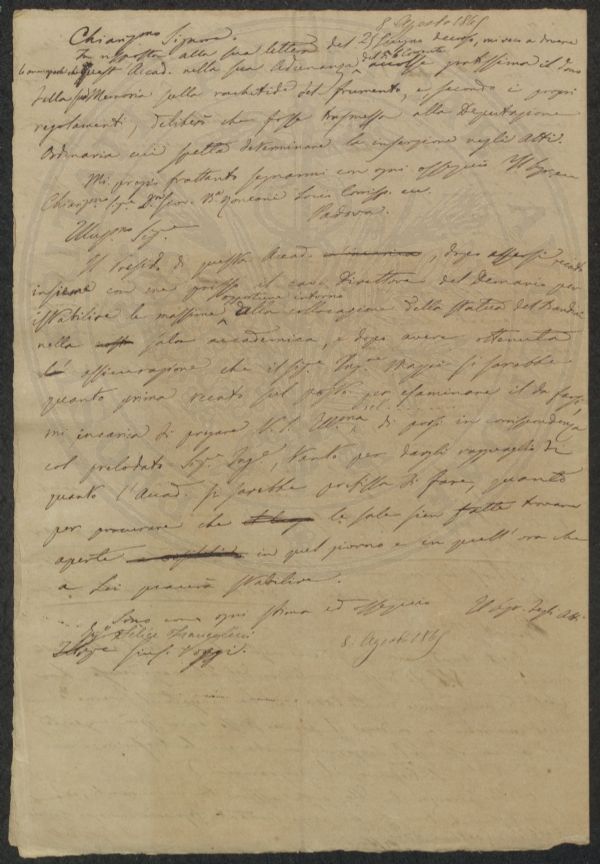 8 Agosto 1865
Chiarissmo Signore.
In risposta alla sua lettera del 25 Giugno decorso, mi reco a dovere
quest' Accad. nella sua Adunanza del dì corrente accolse il dono
della sua Memoria sulla rachitide del frumento, e secondo i propri
regolamenti, deliberò che fosse trasmessa alla Deputazione
Ordinaria cui spetta determinare la inserzione negli Atti.
Mi pregio frattanto segnarmi con ogni ossequio
Chiarissmo Sigre Socio Corrisp.
Padova.
Illmo Sigre
Il Presidte di questa Accad. , dopo essersi recato
insieme con me presso il Direttore del Demanio per
istabilire le massime opportune intorno alla collocazione della statua del Bandini
nella sala accademica, e dopo avere ottenuta
assicurazione che il Sigre Ingre Maggi si sarebbe
quanto prima recato sul posto per esaminare il da farsi,
mi incarica di pregare V. S. Illma di porsi in corrispondenza
col prelodato Sigre Ingre, tanto per dargli ragguaglio di
quanto l'Accad. si sarebbe prefissa di fare, quanto
per procurare che le sale sien fatte trovare
aperte in quel giorno e in quell' ora che
a Lei piacerà stabilire.
Sono con ogni stima ed ossequio Il Segr. degli Atti
Felice Francolini
8. Agosto 1865